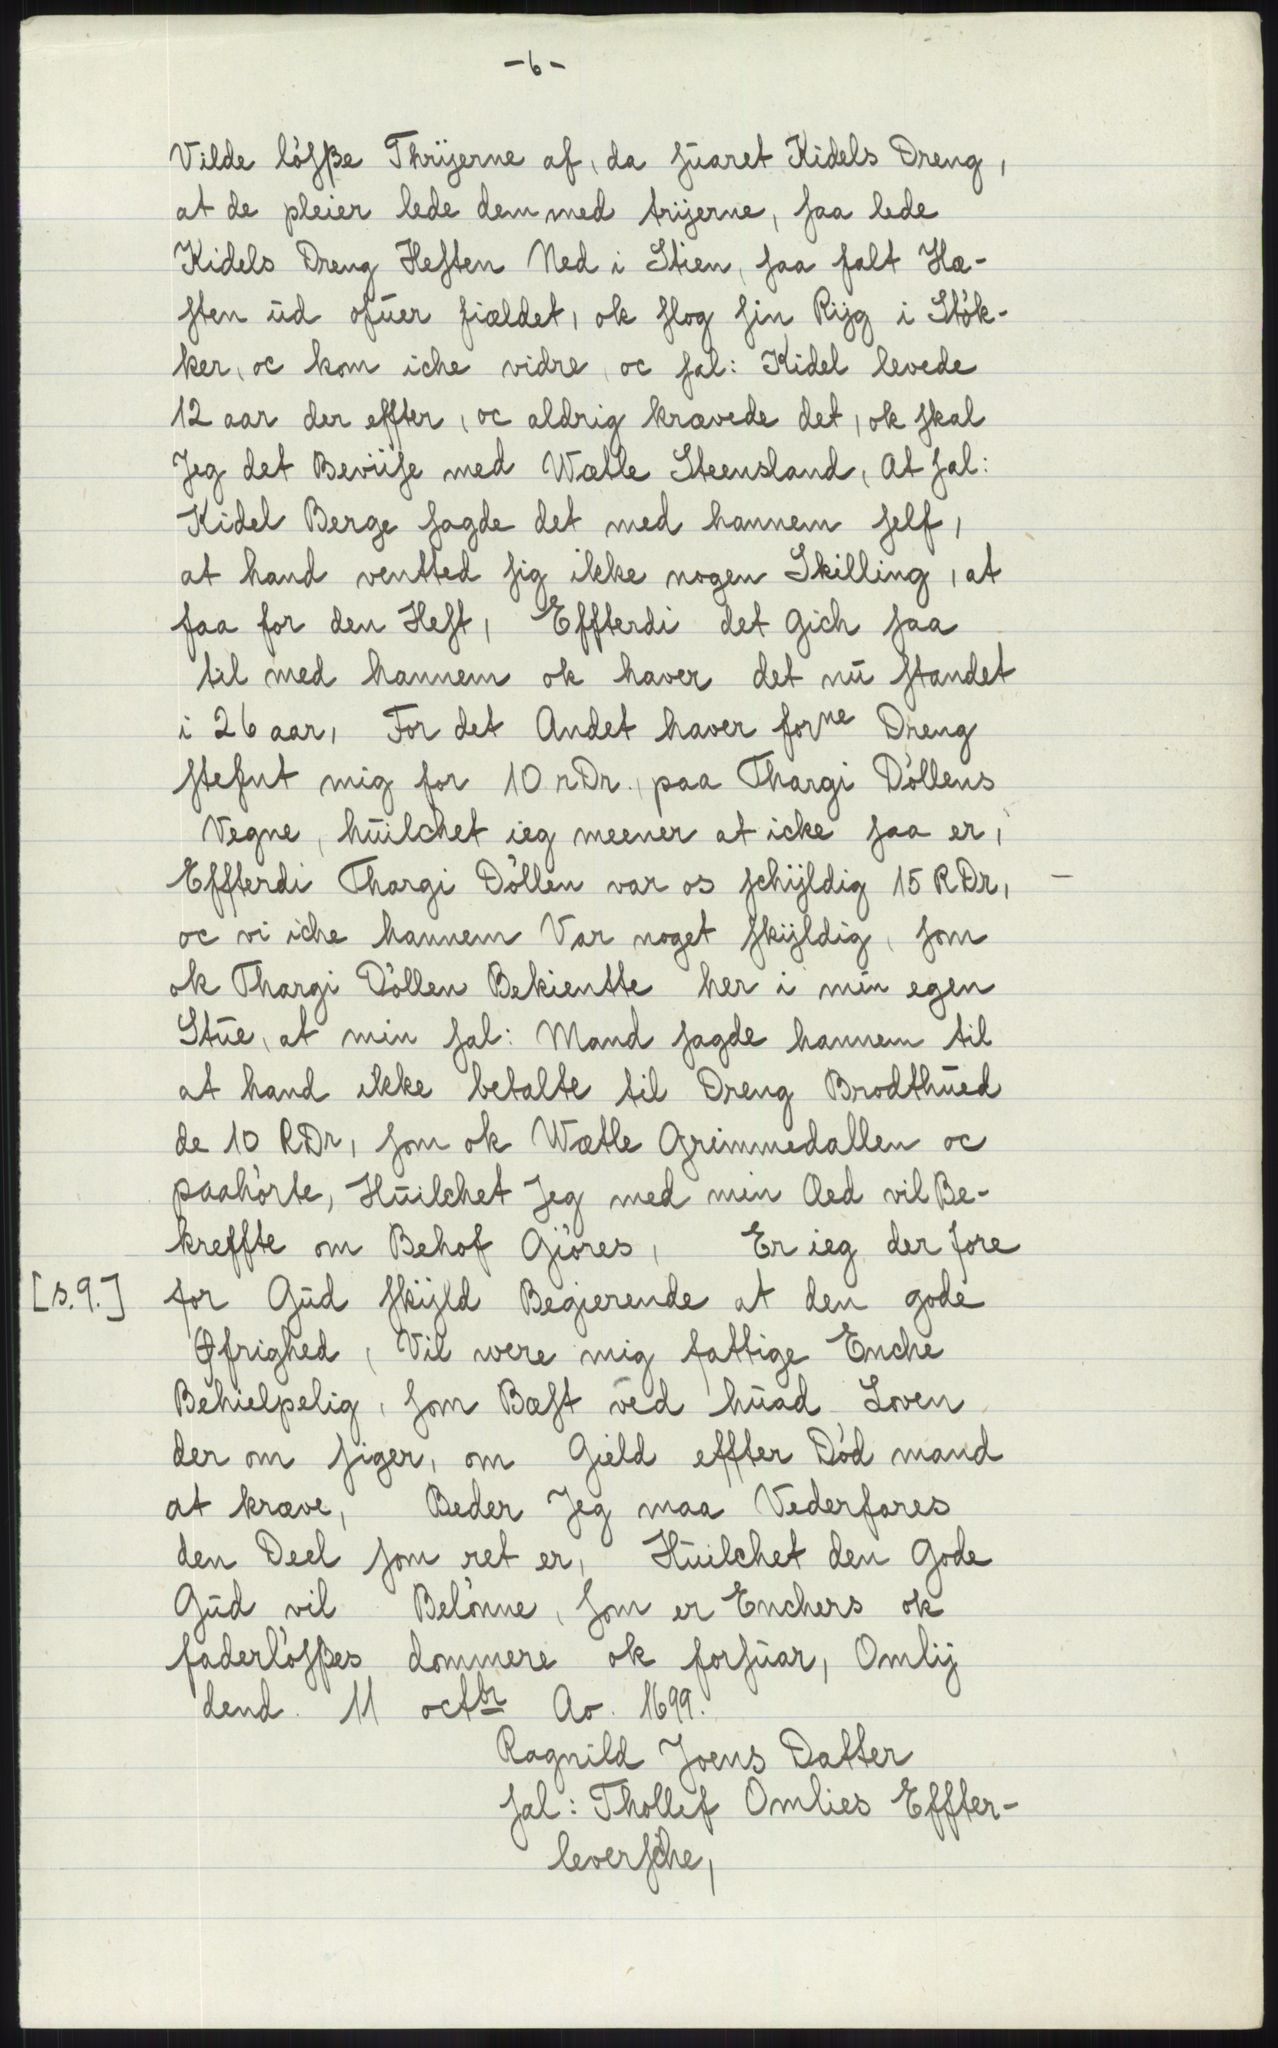 -6-
Vilde løſße Thrÿerne af, da ſuaret Kidels Dreng,
at de pleier lede dem med trÿerne, ſaa lede
Kidels Dreng Heſten Ned i Stien, ſaa falt Hæ-
ſten ud ofuer fiældet, ok ſlog ſin Rÿg i Støk-
ker, oc kom iche vidre, oc ſal: Kidel levede
12 aar der effter, oc aldrig krævede det, ok ſkal
Jeg det Beviiſe med Wætle Steensland, At ſal:
Kidel Berge ſagde det med hannem ſelf,
at hand ventted ſig ikke nogen Skilling, at
faa for den Heſt, Effterdi det Gich ſaa
til med hannem ok haver det nu ſtandet
i 26 aar, For det Andet haver forne Dreng
ſtefnt mig for 10 rDr., paa Thargi Døllens
Vegne, huilchet ieg meener at icke ſaa er,
Effterdi Thargi Døllen var os ſchÿldig 15 RDr, -
oc vi iche hannem Var noget ſkÿldig, ſom
ok Thargi Døllen Bekientte her i min egen
Stue, at min ſal: Mand ſagde hannem til
at hand ikke betalte til Dreng Brodthued
de 10 RDr, ſom ok Wætle Grimmedallen oc
paahørte, Huilchet Jeg med min Aed vil Be-
kreffte om Behof Giøres, Er ieg der fore
[s.9.] for Gud ſkÿld Begierende at den gode
Øfrighed, Vil were mig fattige Enche
Behielpelig, ſom Bæſt ved huad Loven
der om ſiger, om Gield effter Død mand
at kræve, Beder Jeg maa Vederfares
den Deel ſom ret er, Huilchet den Gode
Gud vil Belønne, ſom er Enchers ok
faderløſßes dommere ok forſuar, Omlÿ
dend. 11 octbr Ao. 1699.
Ragnild Joens Datter
ſal: Thollef Omlies Effter-
leverſche,